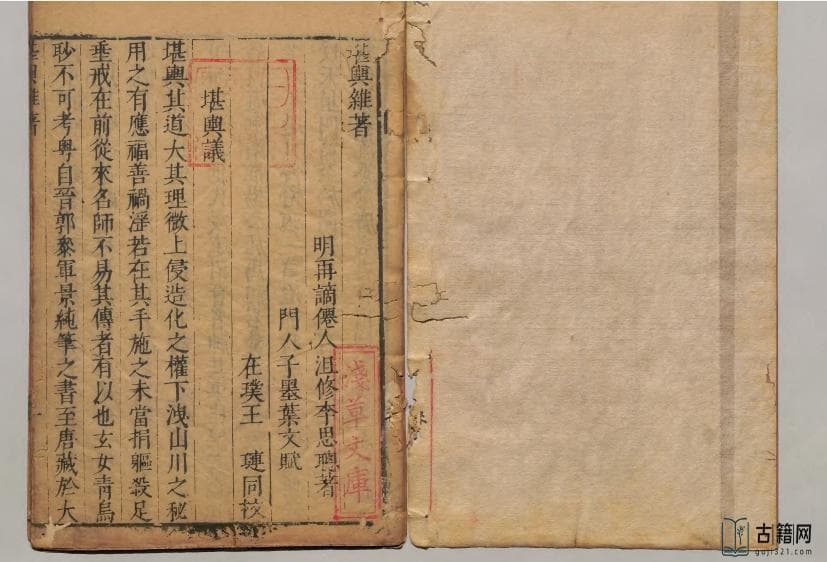 堪輿雜著
明再謫僊人沮修李思聰著
門人子墨葉文賦
在璞王璉同校
堪輿議
堪輿其道大其理微上侵造化之權下洩山川之秘
用之有應福善禍淫若在其手施之未當捐軀殺足
垂戒在前從來名師不易其傳者有以也玄女青烏
眇不可考粤自晉郭叅軍景純筆之書至唐藏於大
堪輿雜著
淺草文庫
古籍网
guji321.com